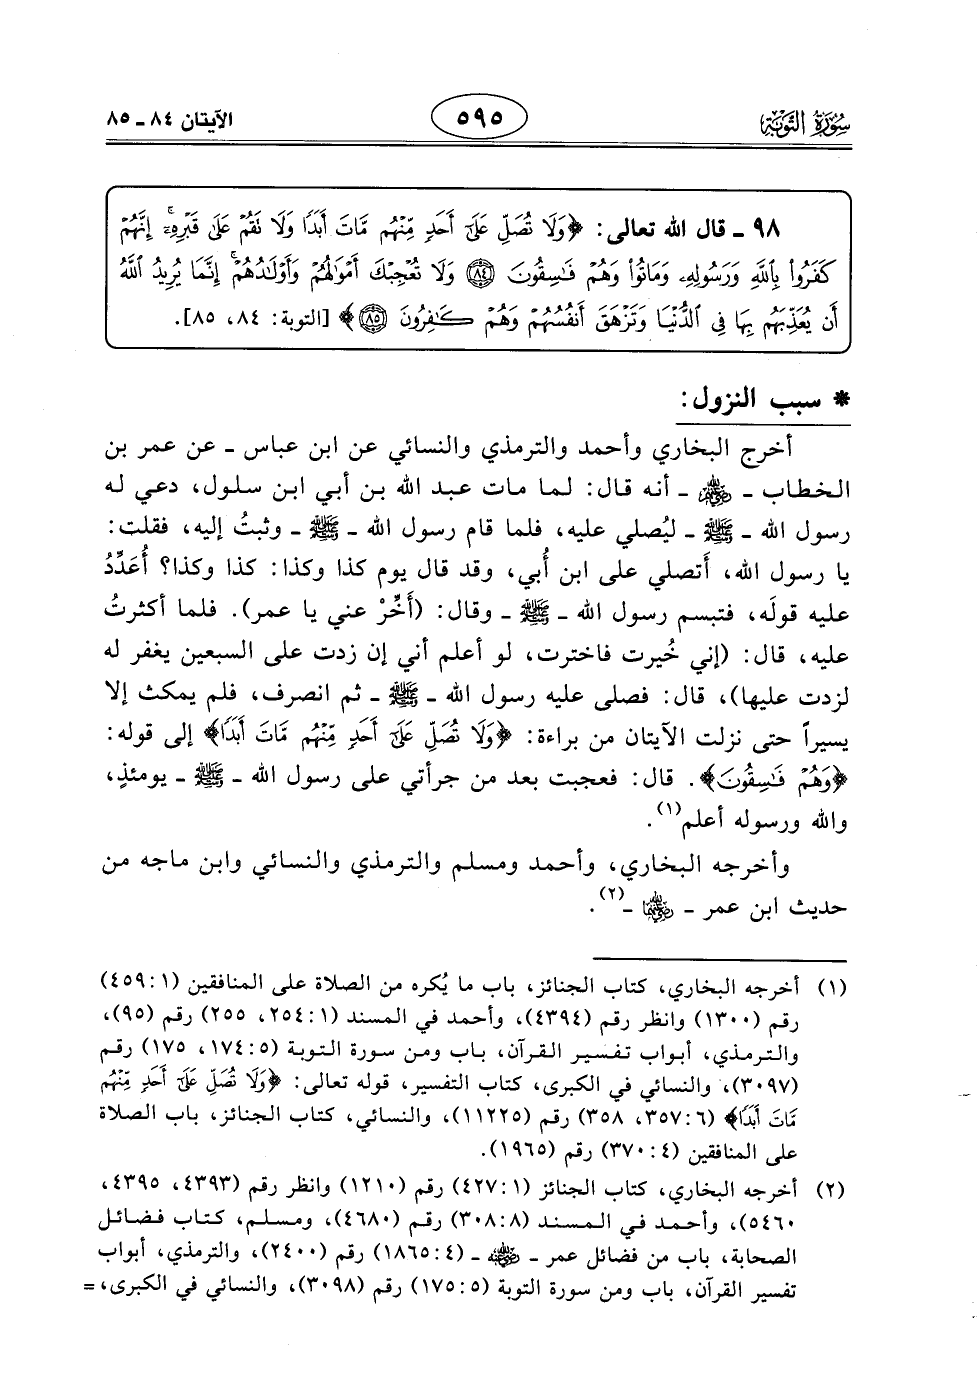 سورة التوبة
٥٩٥
الآيتان ٨٤ ـ ٨٥
٩٨ ـ قال الله تعالى: ﴿وَلَا تُصَلِّ عَلَىٰٓ أَحَدٖ مِّنۡهُم مَّاتَ أَبَدٗا وَلَا تَقُمۡ عَلَىٰ قَبۡرِهِۦٓۖ إِنَّهُمۡ
كَفَرُواْ بِٱللَّهِ وَرَسُولِهِۦ وَمَاتُواْ وَهُمۡ فَٰسِقُونَ ٨٤ وَلَا تُعۡجِبۡكَ أَمۡوَٰلُهُمۡ وَأَوۡلَٰدُهُمۡۚ إِنَّمَا يُرِيدُ ٱللَّهُ
أَن يُعَذِّبَهُم بِهَا فِي ٱلدُّنۡيَا وَتَزۡهَقَ أَنفُسُهُمۡ وَهُمۡ كَٰفِرُونَ ٨٥﴾ [التوبة: ٨٤، ٨٥].
* سبب النزول:
أخرج البخاري وأحمد والترمذي والنسائي عن ابن عباس ـ عن عمر بن
الخطاب ـ رضي الله عنه ـ أنه قال: لما مات عبد الله بن أبي ابن سلول، دعي له
رسول الله ـ ﷺ ـ ليُصلي عليه، فلما قام رسول الله ـ ﷺ ـ وثبتُ إليه، فقلت:
يا رسول الله، أَتصلي على ابن أُبي، وقد قال يوم كذا وكذا: كذا وكذا؟ أُعَدِّدُ
عليه قولَه، فتبسم رسول الله ـ ﷺ ـ وقال: (أَخِّرْ عني يا عمر). فلما أكثرتُ
عليه، قال: (إني خُيرت فاخترت، لو أعلم أني إن زدت على السبعين يغفر له
لزدت عليها)، قال: فصلى عليه رسول الله ـ ﷺ ـ ثم انصرف، فلم يمكث إلا
يسيراً حتى نزلت الآيتان من براءة: ﴿وَلَا تُصَلِّ عَلَىٰٓ أَحَدٖ مِّنۡهُم مَّاتَ أَبَدٗا﴾ إلى قوله:
﴿وَهُمۡ فَٰسِقُونَ﴾. قال: فعجبت بعد من جرأتي على رسول الله ـ ﷺ ـ يومئذٍ،
والله ورسوله أعلم(١).
وأخرجه البخاري، وأحمد ومسلم والترمذي والنسائي وابن ماجه من
حديث ابن عمر ـ رضي الله عنهما ـ(٢).
(١) أخرجه البخاري، كتاب الجنائز، باب ما يُكره من الصلاة على المنافقين (١: ٤٥٩)
رقم (١٣٠٠) وانظر رقم (٤٣٩٤)، وأحمد في المسند (١: ٢٥٤، ٢٥٥) رقم (٩٥)،
والترمذي، أبواب تفسير القرآن، باب ومن سورة التوبة (٥: ١٧٤، ١٧٥) رقم
(٣٠٩٧)، والنسائي في الكبرى، كتاب التفسير، قوله تعالى: ﴿وَلَا تُصَلِّ عَلَىٰٓ أَحَدٖ مِّنۡهُم
مَّاتَ أَبَدٗا﴾ (٦: ٣٥٧، ٣٥٨) رقم (١١٢٢٥)، والنسائي، كتاب الجنائز، باب الصلاة
على المنافقين (٤: ٣٧٠) رقم (١٩٦٥).
(٢) أخرجه البخاري، كتاب الجنائز (١: ٤٢٧) رقم (١٢١٠) وانظر رقم (٤٣٩٣، ٤٣٩٥،
٥٤٦٠)، وأحمد في المسند (٨: ٣٠٨) رقم (٤٦٨٠)، ومسلم، كتاب فضائل
الصحابة، باب من فضائل عمر ـ رضي الله عنه ـ (٤: ١٨٦٥) رقم (٢٤٠٠)، والترمذي، أبواب
تفسير القرآن، باب ومن سورة التوبة (٥: ١٧٥) رقم (٣٠٩٨)، والنسائي في الكبرى، =